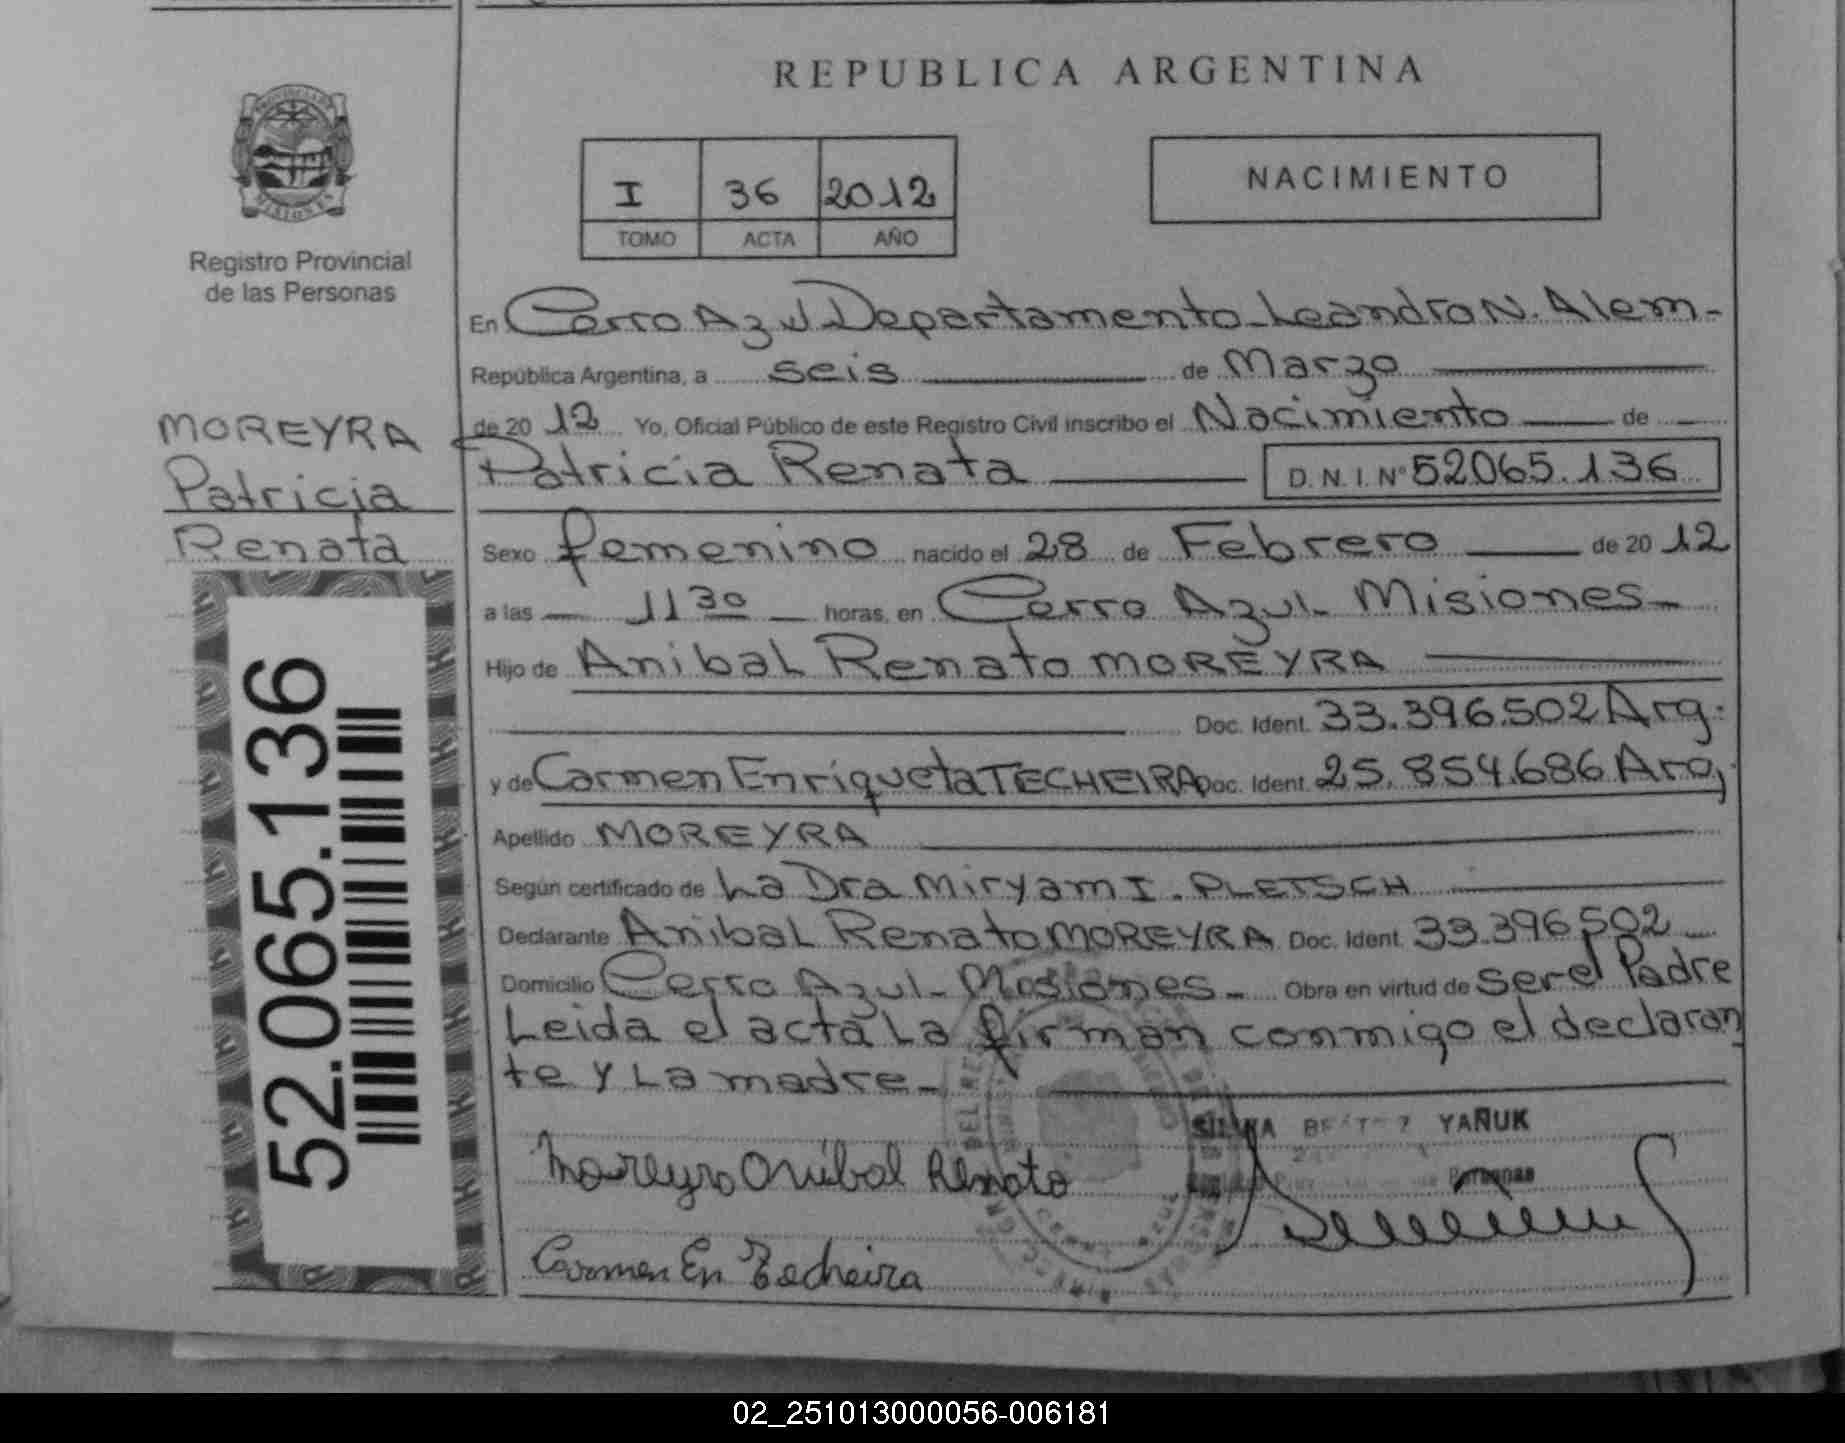 REPUBLICA ARGENTINA
PROVINCIA DE
MISIONES
Registro Provincial
de las Personas
I 36 2012
TOMO ACTA AÑO
NACIMIENTO
En Cerro Azul Departamento Leandro N. Alem-
República Argentina, a seis de Marzo
de 2012 Yo, Oficial Público de este Registro Civil inscribo el Nacimiento de
Patricia Renata D.N.I. Nº 52065.136
MOREYRA
Patricia
Renata
Sexo femenino nacido el 28 de Febrero de 2012
a las 11 30 horas, en Cerro Azul- Misiones-
Hijo de Anibal Renato MOREYRA
Doc. Ident. 33.396.502 Arg.
y de Carmen Enriqueta TECHEIRA Doc. Ident. 25.854.686 Arg.
Apellido MOREYRA
Según certificado de La Dra Miryam I. PLETSCH
Declarante Anibal Renato MOREYRA Doc. Ident. 33.396502
Domicilio Cerro Azul- Misiones- Obra en virtud de ser el Padre
Leida el acta La firman conmigo el declaran
te y La madre-
52.065.136
YAÑUK
Personas
Moreyra Anibal Renato
Carmen En Techeira
02_251013000056-006181